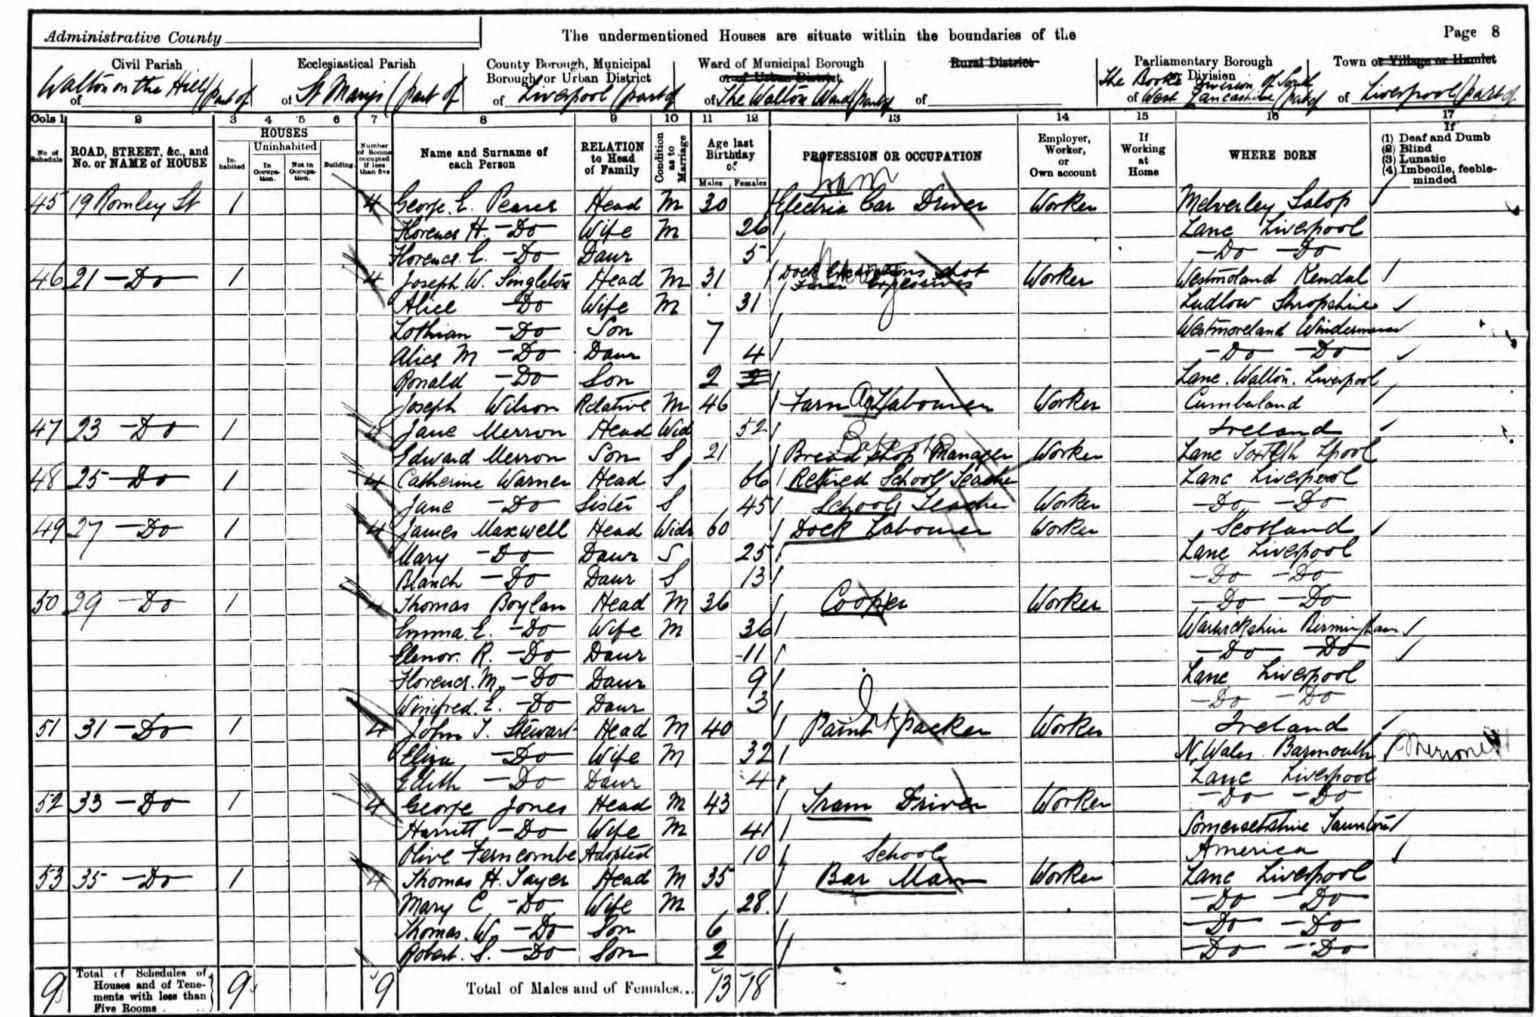 Administrative County
The undermentioned Houses are situate within the boundaries of the
Page 8
Civil Parish
Walton on the Hill (part of
of
Ecclesiastical Parish
of St Marys (part of
County Borough, Municipal
Borough or Urban District
of Liverpool (part of
Ward of Municipal Borough
or of Urban District
of The Walton Ward (part of
Rural District
of
Parliamentary Borough
or Division
The Bootle Division of South
of West Lancashire (part of
Town or Village or Hamlet
of Liverpool (part of
Cols 1 2 3 4 5 6 7 8 9 10 11 12 13 14 15 16 17
No. of Schedule
ROAD, STREET, &c., and No. or NAME of HOUSE
HOUSES
Inhabited
Uninhabited
In Occupation.
Not in Occupation.
Building.
Number of Rooms occupied if less than five
Name and Surname of each Person
RELATION to Head of Family
Condition as to Marriage
Age last Birthday of
Males Females
PROFESSION OR OCCUPATION
Employer, Worker, or Own account
If Working at Home
WHERE BORN
If
(1) Deaf and Dumb
(2) Blind
(3) Lunatic
(4) Imbecile, feeble-minded
Tram
45 19 Romley St 1 4 George E. Pearce Head M 30 Electric Car Driver Worker Melverley Salop
Florence H. Do Wife M 26 Lanc Liverpool
Florence E. Do Daur 5 Do Do
46 21 Do 1 4 Joseph W. Singleton Head M 31 Dock shot Explosives Worker Westmoland Kendal
Alice Do Wife M 31 Ludlow Shropshire
Lothian Do Son 7 Westmoreland Windermere
Alice M Do Daur 4 Do Do
Ronald Do Son 2 2 Lanc. Walton. Liverpool
Joseph Wilson Relative M 46 Farm Labourer Worker Cumberland
Ag
47 23 Do 1 Jane Merron Head Wid 52 Ireland
Edward Merron Son S 21 Bread Shop Manager Worker Lanc Toxteth Lpool
48 25 Do 1 4 Catherine Warner Head S 66 Retired School Teacher Lanc Liverpool
Jane Do Sister S 45 School Teacher Worker Do Do
49 27 Do 1 4 James Maxwell Head Widr 60 Dock Labourer Worker Scotland
Mary Do Daur S 25 Lanc Liverpool
Blanch Do Daur S 13 Do Do
50 29 Do 1 4 Thomas Boylan Head M 36 Cooper Worker Do Do
Emma E. Do Wife M 36 Warwickshire Birmingham
Elenor. R. Do Daur 11 Do Do
Florence. M. Do Daur 9 Lanc Liverpool
Winifred. E. Do Daur 3 Do Do
51 31 Do 1 4 John T. Stewart Head M 40 Paint packer Worker Ireland
Eliza Do Wife M 32 N. Wales. Barmouth Merioneth
Edith Do Daur 4 Lanc Liverpool
52 33 Do 1 4 George Jones Head M 43 Tram Driver Worker Do Do
Harritt Do Wife M 41 Somersetshire Taunton
Olive Ferncombe Adopted 10 School America
53 35 Do 1 4 Thomas H. Sayer Head M 35 Bar Man Worker Lanc Liverpool
Mary C Do Wife M 28 Do Do
Thomas. W. Do Son 6 Do Do
Robert. S. Do Son 2 Do Do
9 Total of Schedules of Houses and of Tenements with less than Five Rooms 9 9 Total of Males and of Females... 13 18